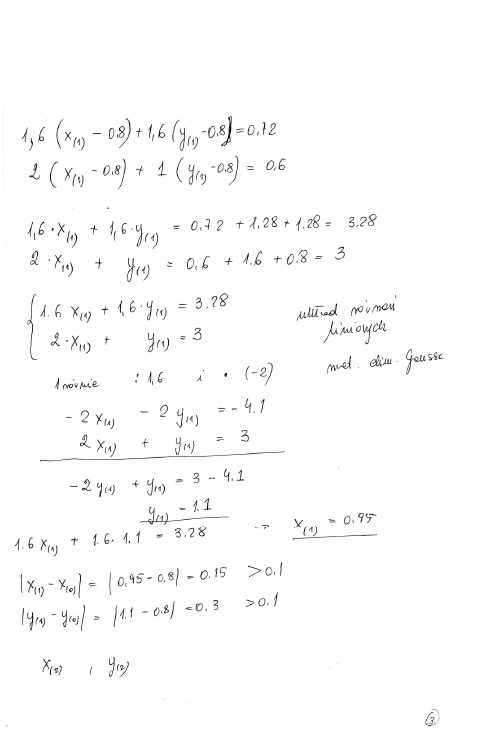 1,6 (x(1) - 0.8) + 1,6 (y(1) - 0.8) = 0.72
2 (x(1) - 0.8) + 1 (y(1) - 0.8) = 0.6
1,6 · x(1) + 1,6 · y(1) = 0.72 + 1.28 + 1.28 = 3.28
2 · x(1) + y(1) = 0.6 + 1.6 + 0.8 = 3
1.6 x(1) + 1,6 · y(1) = 3.28
2 · x(1) + y(1) = 3
układ równań
liniowych
met. elim. Gaussa
1 równie : 1,6 i • (-2)
- 2 x(1) - 2 y(1) = - 4.1
2 x(1) + y(1) = 3
- 2 y(1) + y(1) = 3 - 4.1
y(1) - 1.1
1.6 x(1) + 1.6 · 1.1 = 3.28 => x(1) = 0.95
|x(1) - x(0)| = |0.95 - 0.8| = 0.15 > 0.1
|y(1) - y(0)| = |1.1 - 0.8| = 0.3 > 0.1
x(2) , y(2)
3